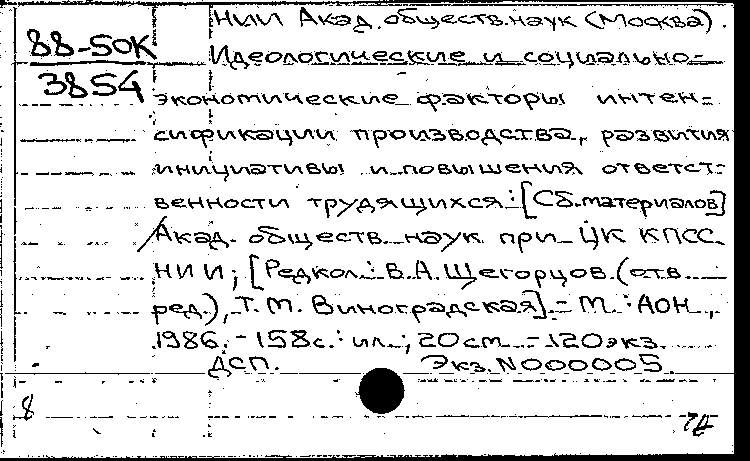 НИИ Акад. обществ. наук (Москва).
88-50К
Идеологические и социально-
3854
экономические факторы интен-
сификации производства, развития
инициативы и повышения ответст-
венности трудящихся : [Сб. материалов]
/ Акад. обществ. наук при ЦК КПСС.
НИИ; [Редкол.: В.А. Щегорцов (отв.
ред.), Т.М. Виноградская]. - М. : АОН,
1986. - 158с. : ил.; 20см - 120экз.
ДСП. Экз. N000005.
8